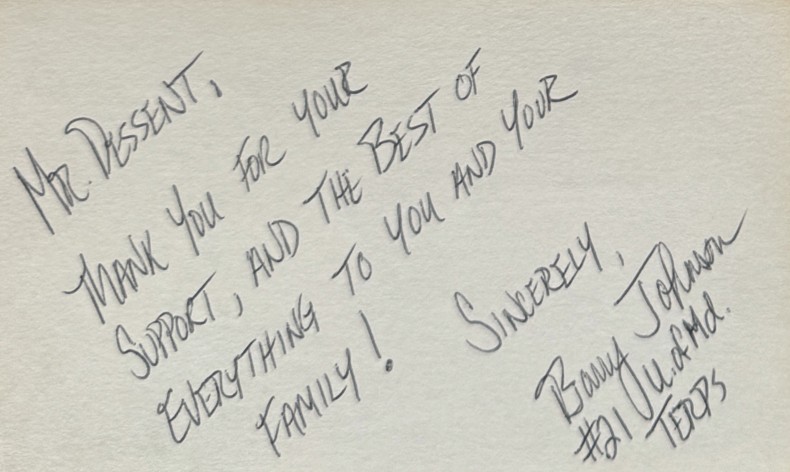 Mr. Dessent,
Thank you for your
support, and the best of
everything to you and your
family!
Sincerely,
Barry Johnson
#21 U. of Md.
Terps